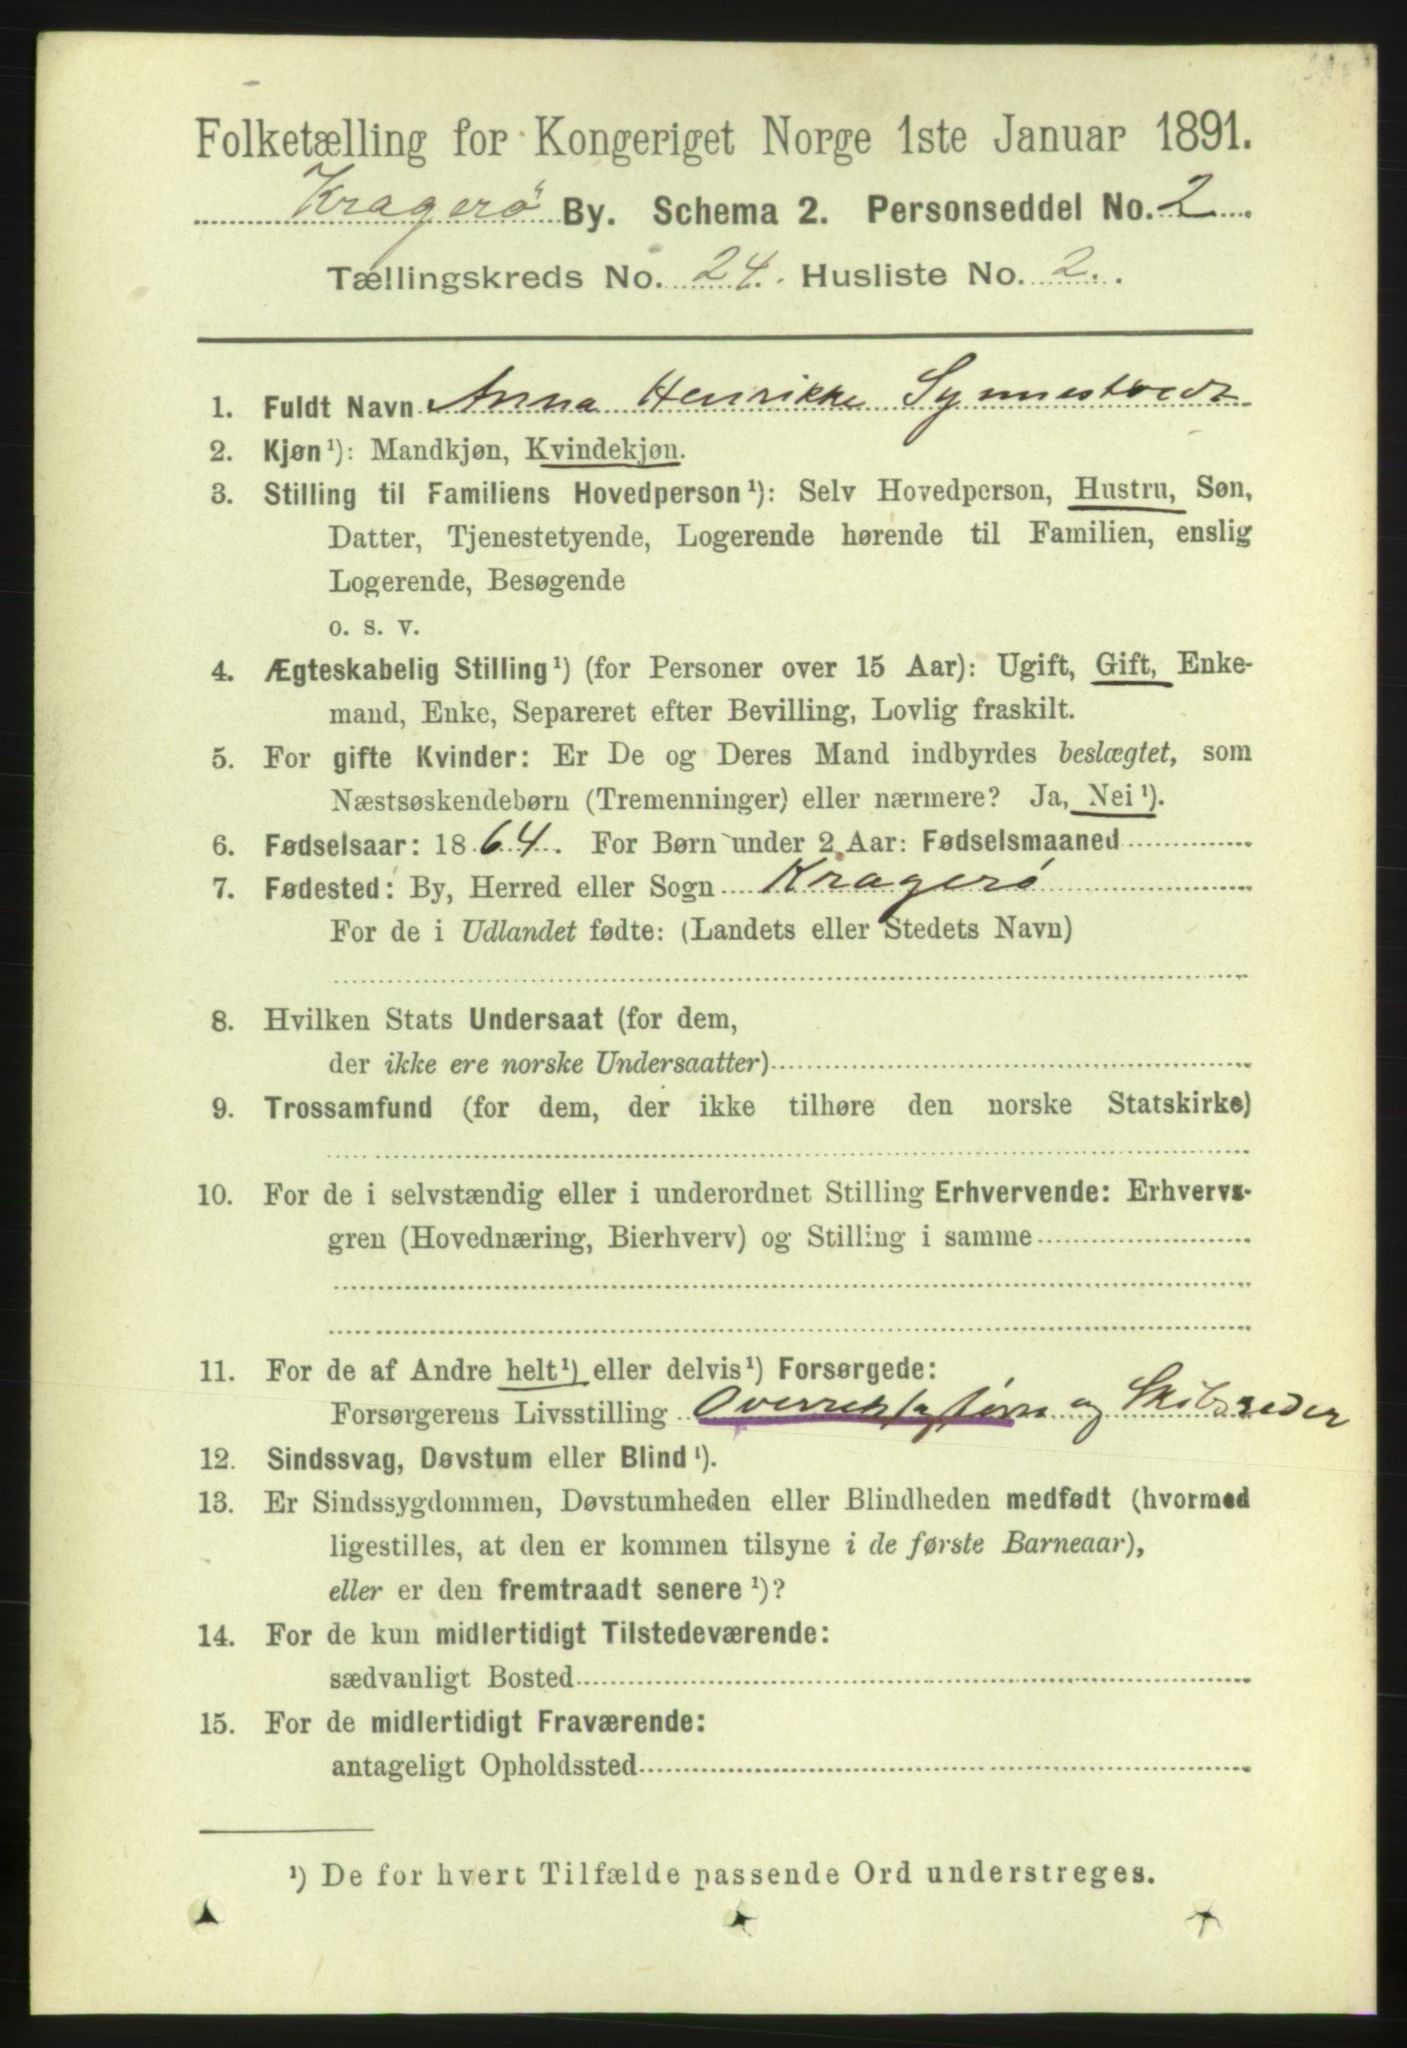 Folketælling for Kongeriget Norge 1ste Januar 1891.
Kragerø By. Schema 2. Personseddel No. 2
Tællingskreds No. 24. Husliste No. 2.
1. Fuldt Navn Anna Henrikke Synnestvedt
2. Kjøn¹): Mandkjøn, Kvindekjøn.
3. Stilling til Familiens Hovedperson¹): Selv Hovedperson, Hustru, Søn,
Datter, Tjenestetyende, Logerende hørende til Familien, enslig
Logerende, Besøgende
o. s. v.
4. Ægteskabelig Stilling¹) (for Personer over 15 Aar): Ugift, Gift, Enke-
mand, Enke, Separeret efter Bevilling, Lovlig fraskilt.
5. For gifte Kvinder: Er De og Deres Mand indbyrdes beslægtet, som
Næstsøskendebørn (Tremenninger) eller nærmere? Ja, Nei¹).
6. Fødselsaar: 1864. For Børn under 2 Aar: Fødselsmaaned
7. Fødested: By, Herred eller Sogn Kragerø
For de i Udlandet fødte: (Landets eller Stedets Navn)
8. Hvilken Stats Undersaat (for dem,
der ikke ere norske Undersaatter)
9. Trossamfund (for dem, der ikke tilhøre den norske Statskirke)
10. For de i selvstændig eller i underordnet Stilling Erhvervende: Erhvervs-
gren (Hovednæring, Bierhverv) og Stilling i samme
11. For de af Andre helt¹) eller delvis¹) Forsørgede:
Forsørgerens Livsstilling og Skibsreder
12. Sindssvag, Døvstum eller Blind¹).
13. Er Sindssygdommen, Døvstumheden eller Blindheden medfødt (hvormed
ligestilles, at den er kommen tilsyne i de første Barneaar),
eller er den fremtraadt senere¹)?
14. For de kun midlertidigt Tilstedeværende:
sædvanligt Bosted
15. For de midlertidigt Fraværende:
antageligt Opholdssted
¹) De for hvert Tilfælde passende Ord understreges.